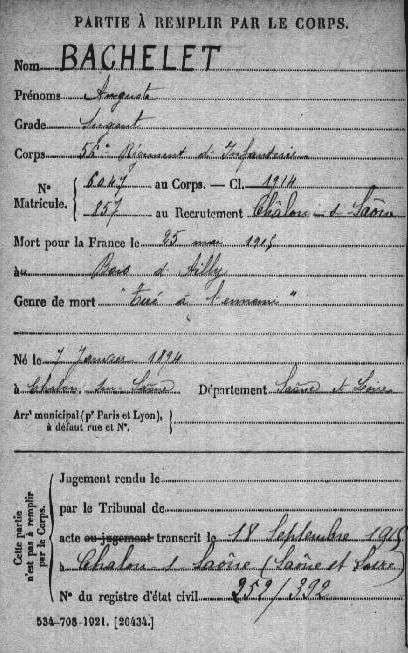 PARTIE À REMPLIR PAR LE CORPS.
Nom BACHELET
Prénoms Auguste
Grade Sergent
Corps 56me Régiment d'Infanterie
No Matricule. 6047 au Corps. — Cl. 1914
857 au Recrutement Châlon s Saône
Mort pour la France le 25 mai 1915
au Bois d'Ailly
Genre de mort "tué à l'ennemi"
Né le 7 Janvier 1894
à Chalon sur Saône Département Saône et Loire
Arrt municipal (pr Paris et Lyon), à défaut rue et No.
Cette partie n'est pas à remplir par le Corps.
Jugement rendu le
par le Tribunal de
acte ou jugement transcrit le 18 Septembre 1915
à Chalon s Saône (Saône et Loire)
No du registre d'état civil 259/392
534-708-1921. [26434.]